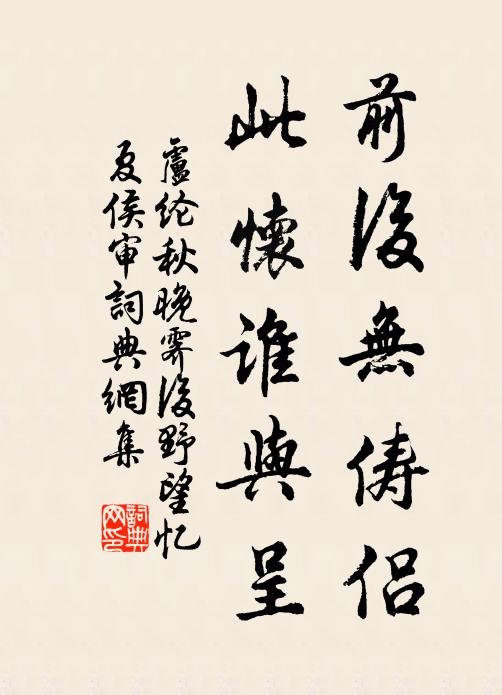 前後無儔侶
此懷誰與呈
盧纶秋晚霽後野望忆
夏侯审詞典網集
詞典网印